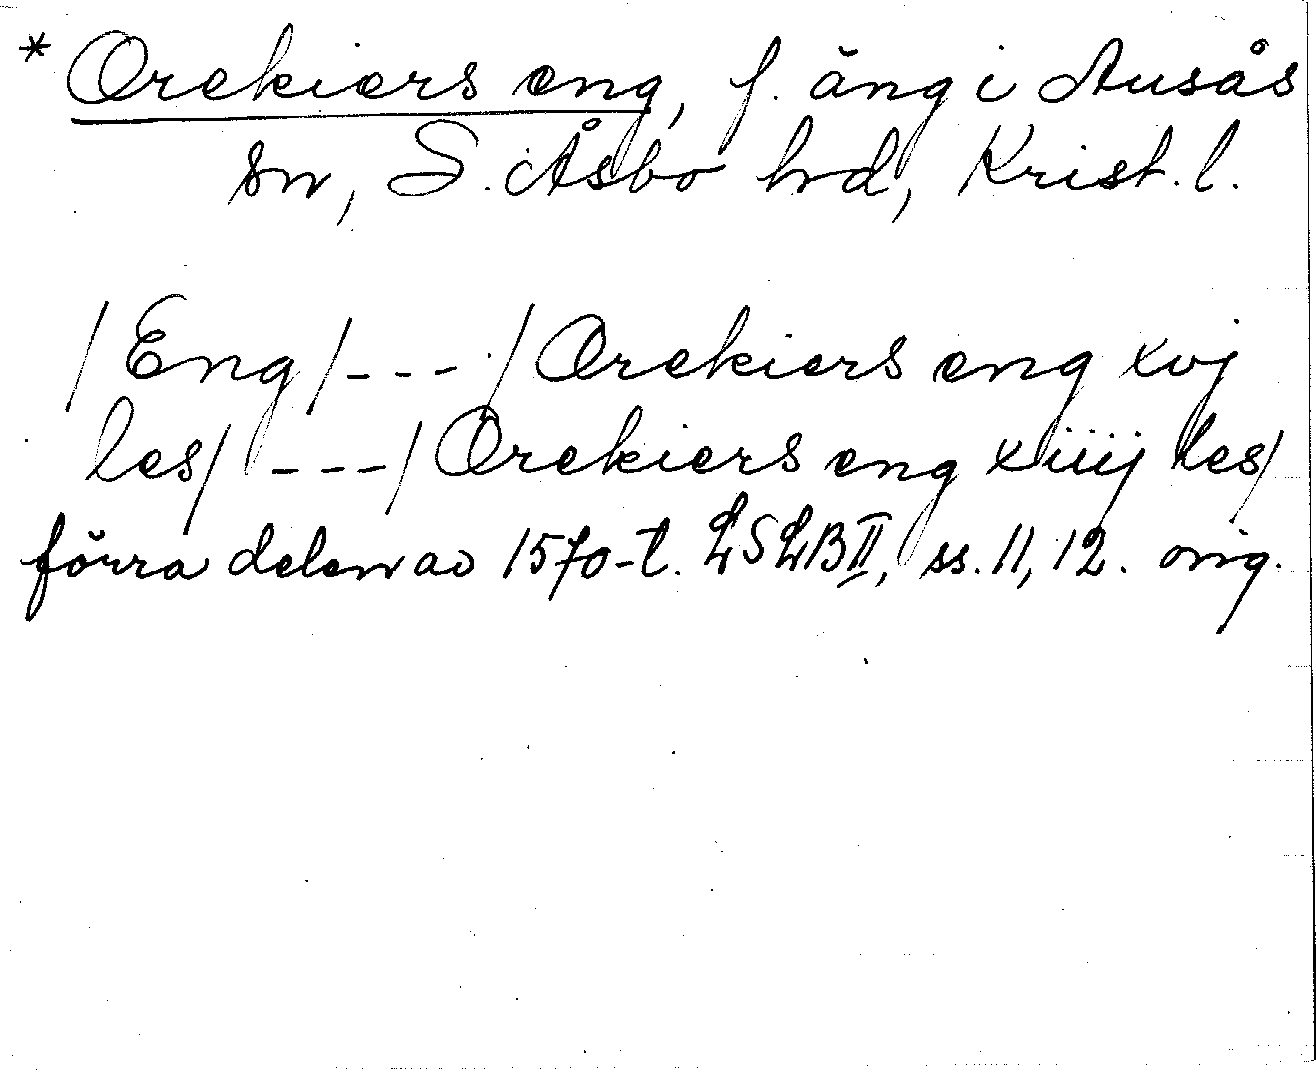 * Orekiers eng, f. äng i Ausås
sn, S. Åsbo hd, Krist. l.
/Eng/---/Orekiers eng xvj
les/ ---/Orekiers eng xiiij les/
förra delen av 1570-t. LSLB II, ss. 11, 12. orig.